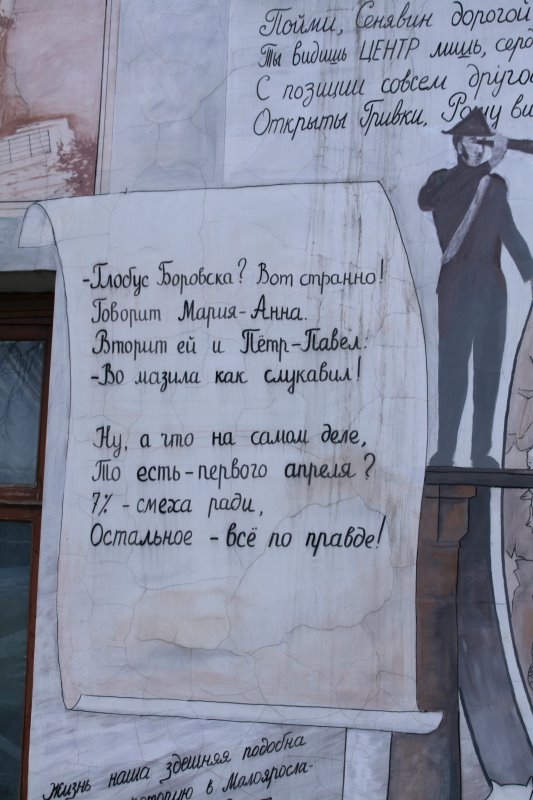 Пойми, Сенявин дорогой
Ты видишь ЦЕНТР лишь,
С позиции совсем
Открыты Гривки,
-Глобус Боровска? Вот странно!
Говорит Мария-Анна.
Вторит ей и Пётр-Павел:
-Во мазила как слукавил!
Ну, а что на самом деле,
То есть-первого апреля?
7% - смеха ради,
Остальное - всё по правде!
Жизнь наша здешняя подобна
в Малояросла-